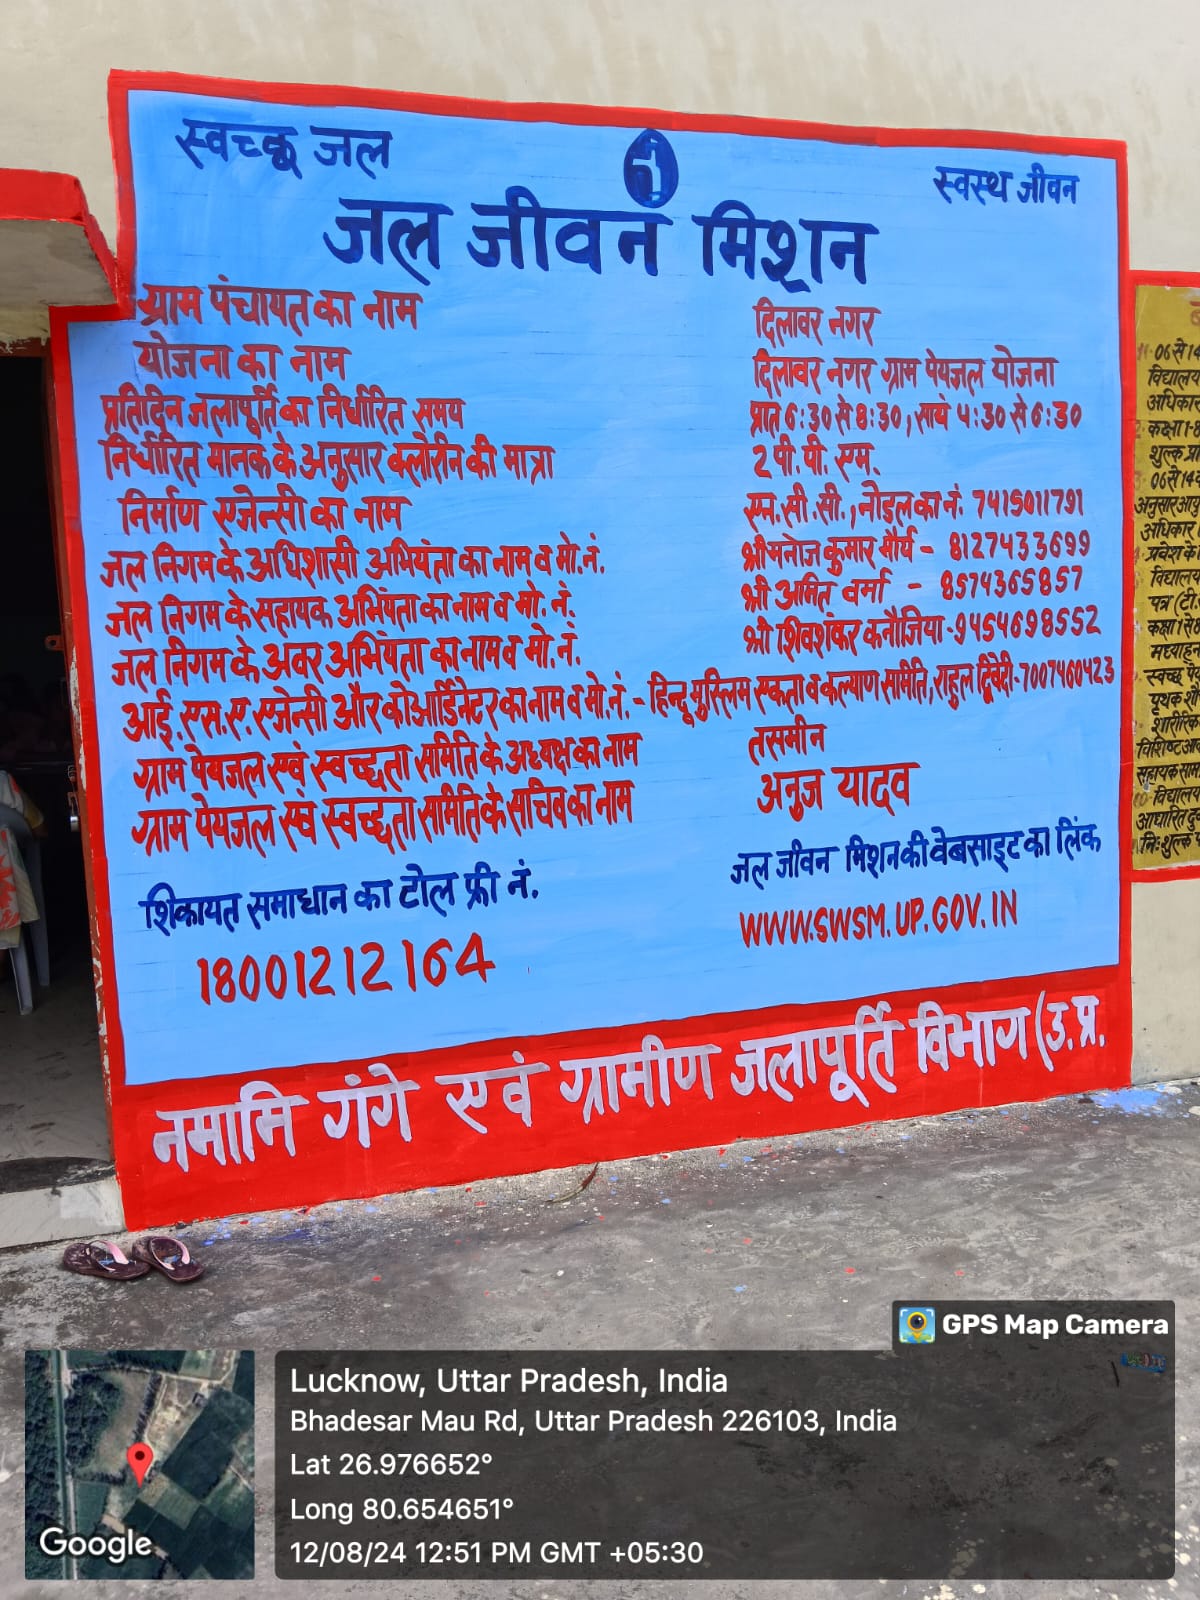 स्वच्छ जल
स्वस्थ जीवन
जल जीवन मिशन
ग्राम पंचायत का नाम दिलावर नगर
योजना का नाम दिलावर नगर ग्राम पेयजल योजना
प्रतिदिन जलापूर्ति का निर्धारित समय प्रात 6:30 से 8:30, सायं 4:30 से 6:30
निर्धारित मानक के अनुसार क्लोरीन की मात्रा 2 पी. पी. एम.
निर्माण एजेन्सी का नाम एन. सी. सी., नोडल का नं. 7415011791
जल निगम के अधिशासी अभियंता का नाम व मो. नं. श्री मनोज कुमार मौर्य - 8127433699
जल निगम के सहायक अभियंता का नाम व मो. नं. श्री अमित वर्मा - 8574365857
जल निगम के अवर अभियंता का नाम व मो. नं. श्री शिवशंकर कनौजिया - 9454698552
आई. एस. ए. एजेन्सी और कोआर्डिनेटर का नाम व मो. नं. - हिन्दू मुस्लिम एकता व कल्याण समिति, राहुल द्विवेदी - 7007460423
ग्राम पेयजल एवं स्वच्छता समिति के अध्यक्ष का नाम तसमीन
ग्राम पेयजल एवं स्वच्छता समिति के सचिव का नाम अनुज यादव
शिकायत समाधान का टोल फ्री नं.
18001212164
जल जीवन मिशन की वेबसाइट का लिंक
WWW.SWSM.UP.GOV.IN
नमामि गंगे एवं ग्रामीण जलापूर्ति विभाग (उ.प्र.
06 से 14
विद्यालय
अधिकार
कक्षा 1-8
शुल्क
06 से 14
अनुसार
अधिकार
प्रवेश के
विद्यालय
पत्र (टी.
कक्षा 1 से 8
मध्याह्न
स्वच्छ
पृथक
शारीरिक
विशिष्ट
सहायक
विद्यालय
आधारित
निःशुल्क
GPS Map Camera
Lucknow, Uttar Pradesh, India
Bhadesar Mau Rd, Uttar Pradesh 226103, India
Lat 26.976652°
Long 80.654651°
12/08/24 12:51 PM GMT +05:30
Google